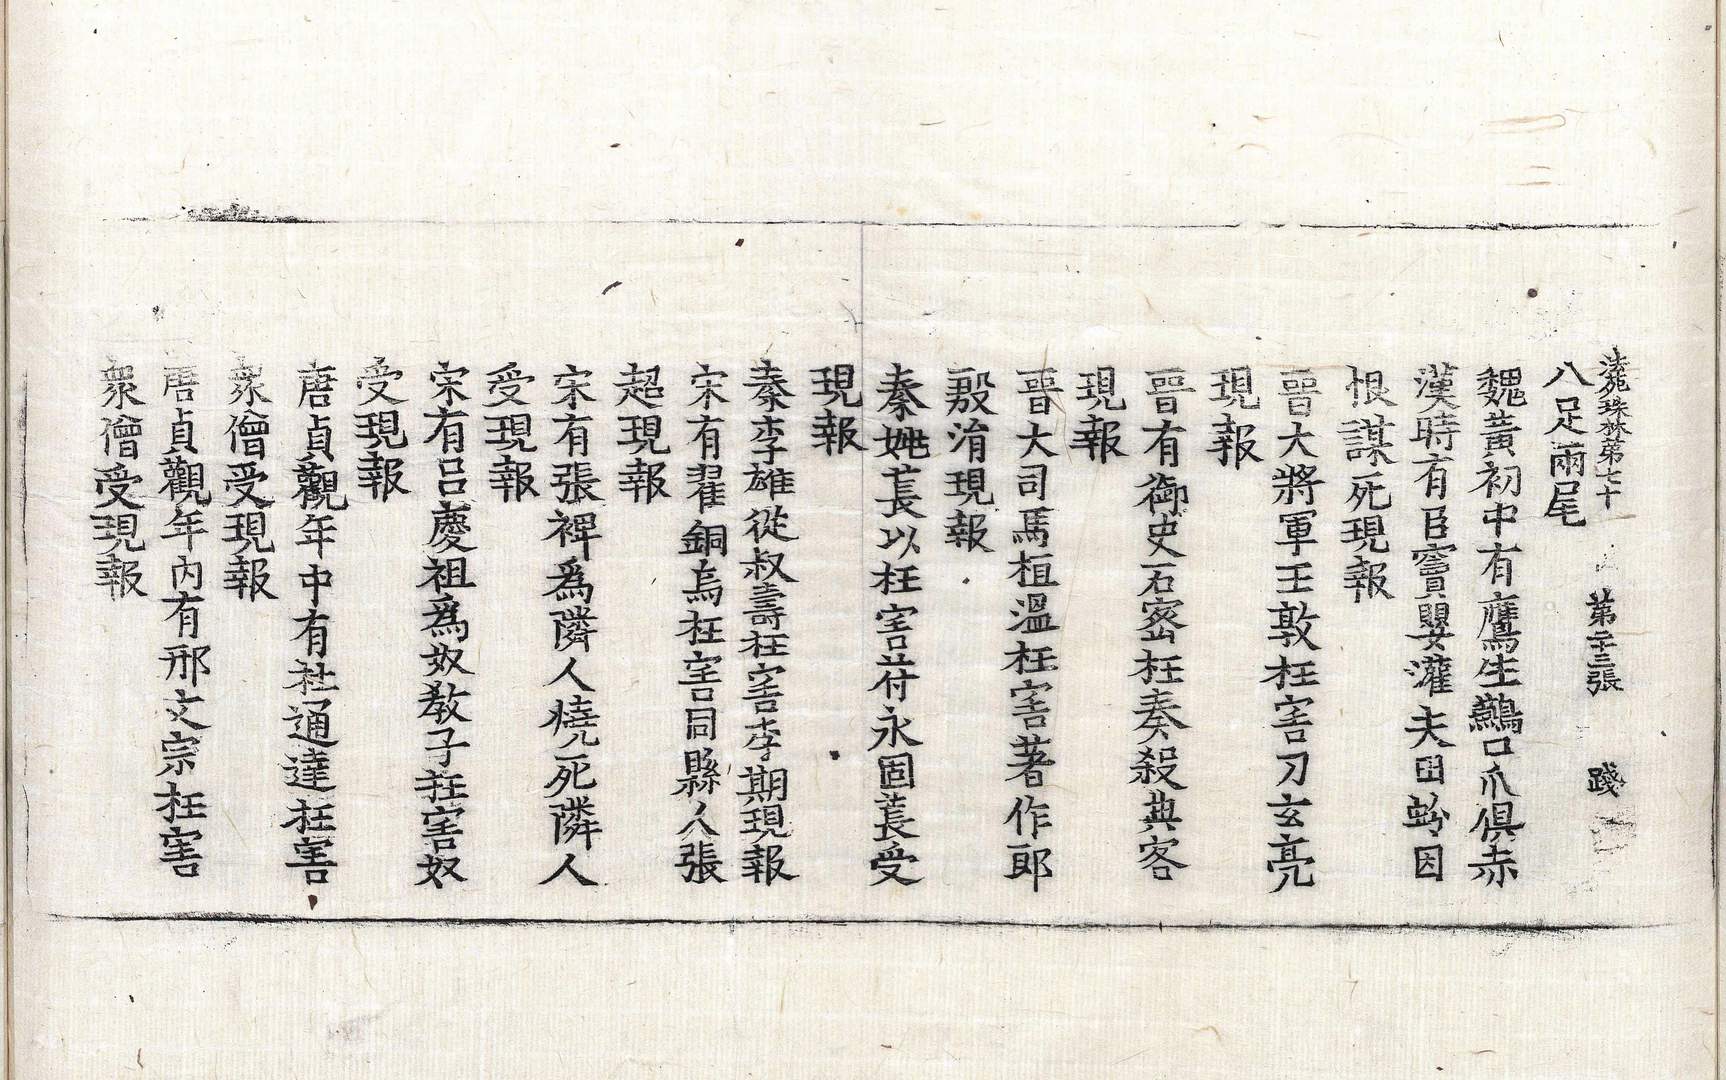 法苑珠林第七十 第二十三張 踐
八足兩尾
魏黃初中有鷹生鷰口爪俱赤
漢時有臣竇嬰灌夫田蚡因
恨謀死現報
晉大將軍王敦枉害刀玄亮
現報
晉有御史石密枉奏殺典客
現報
晉大司馬桓溫枉害著作郎
殷涓現報
秦姚萇以枉害苻永固萇受
現報
秦李雄從叔壽枉害李期現報
宋有翟銅烏枉害同縣人張
超現報
宋有張裨爲隣人燒死隣人
受現報
宋有呂慶祖爲奴教子枉害奴
受現報
唐貞觀年中有杜通達枉害
衆僧受現報
唐貞觀年內有邢文宗枉害
衆僧受現報